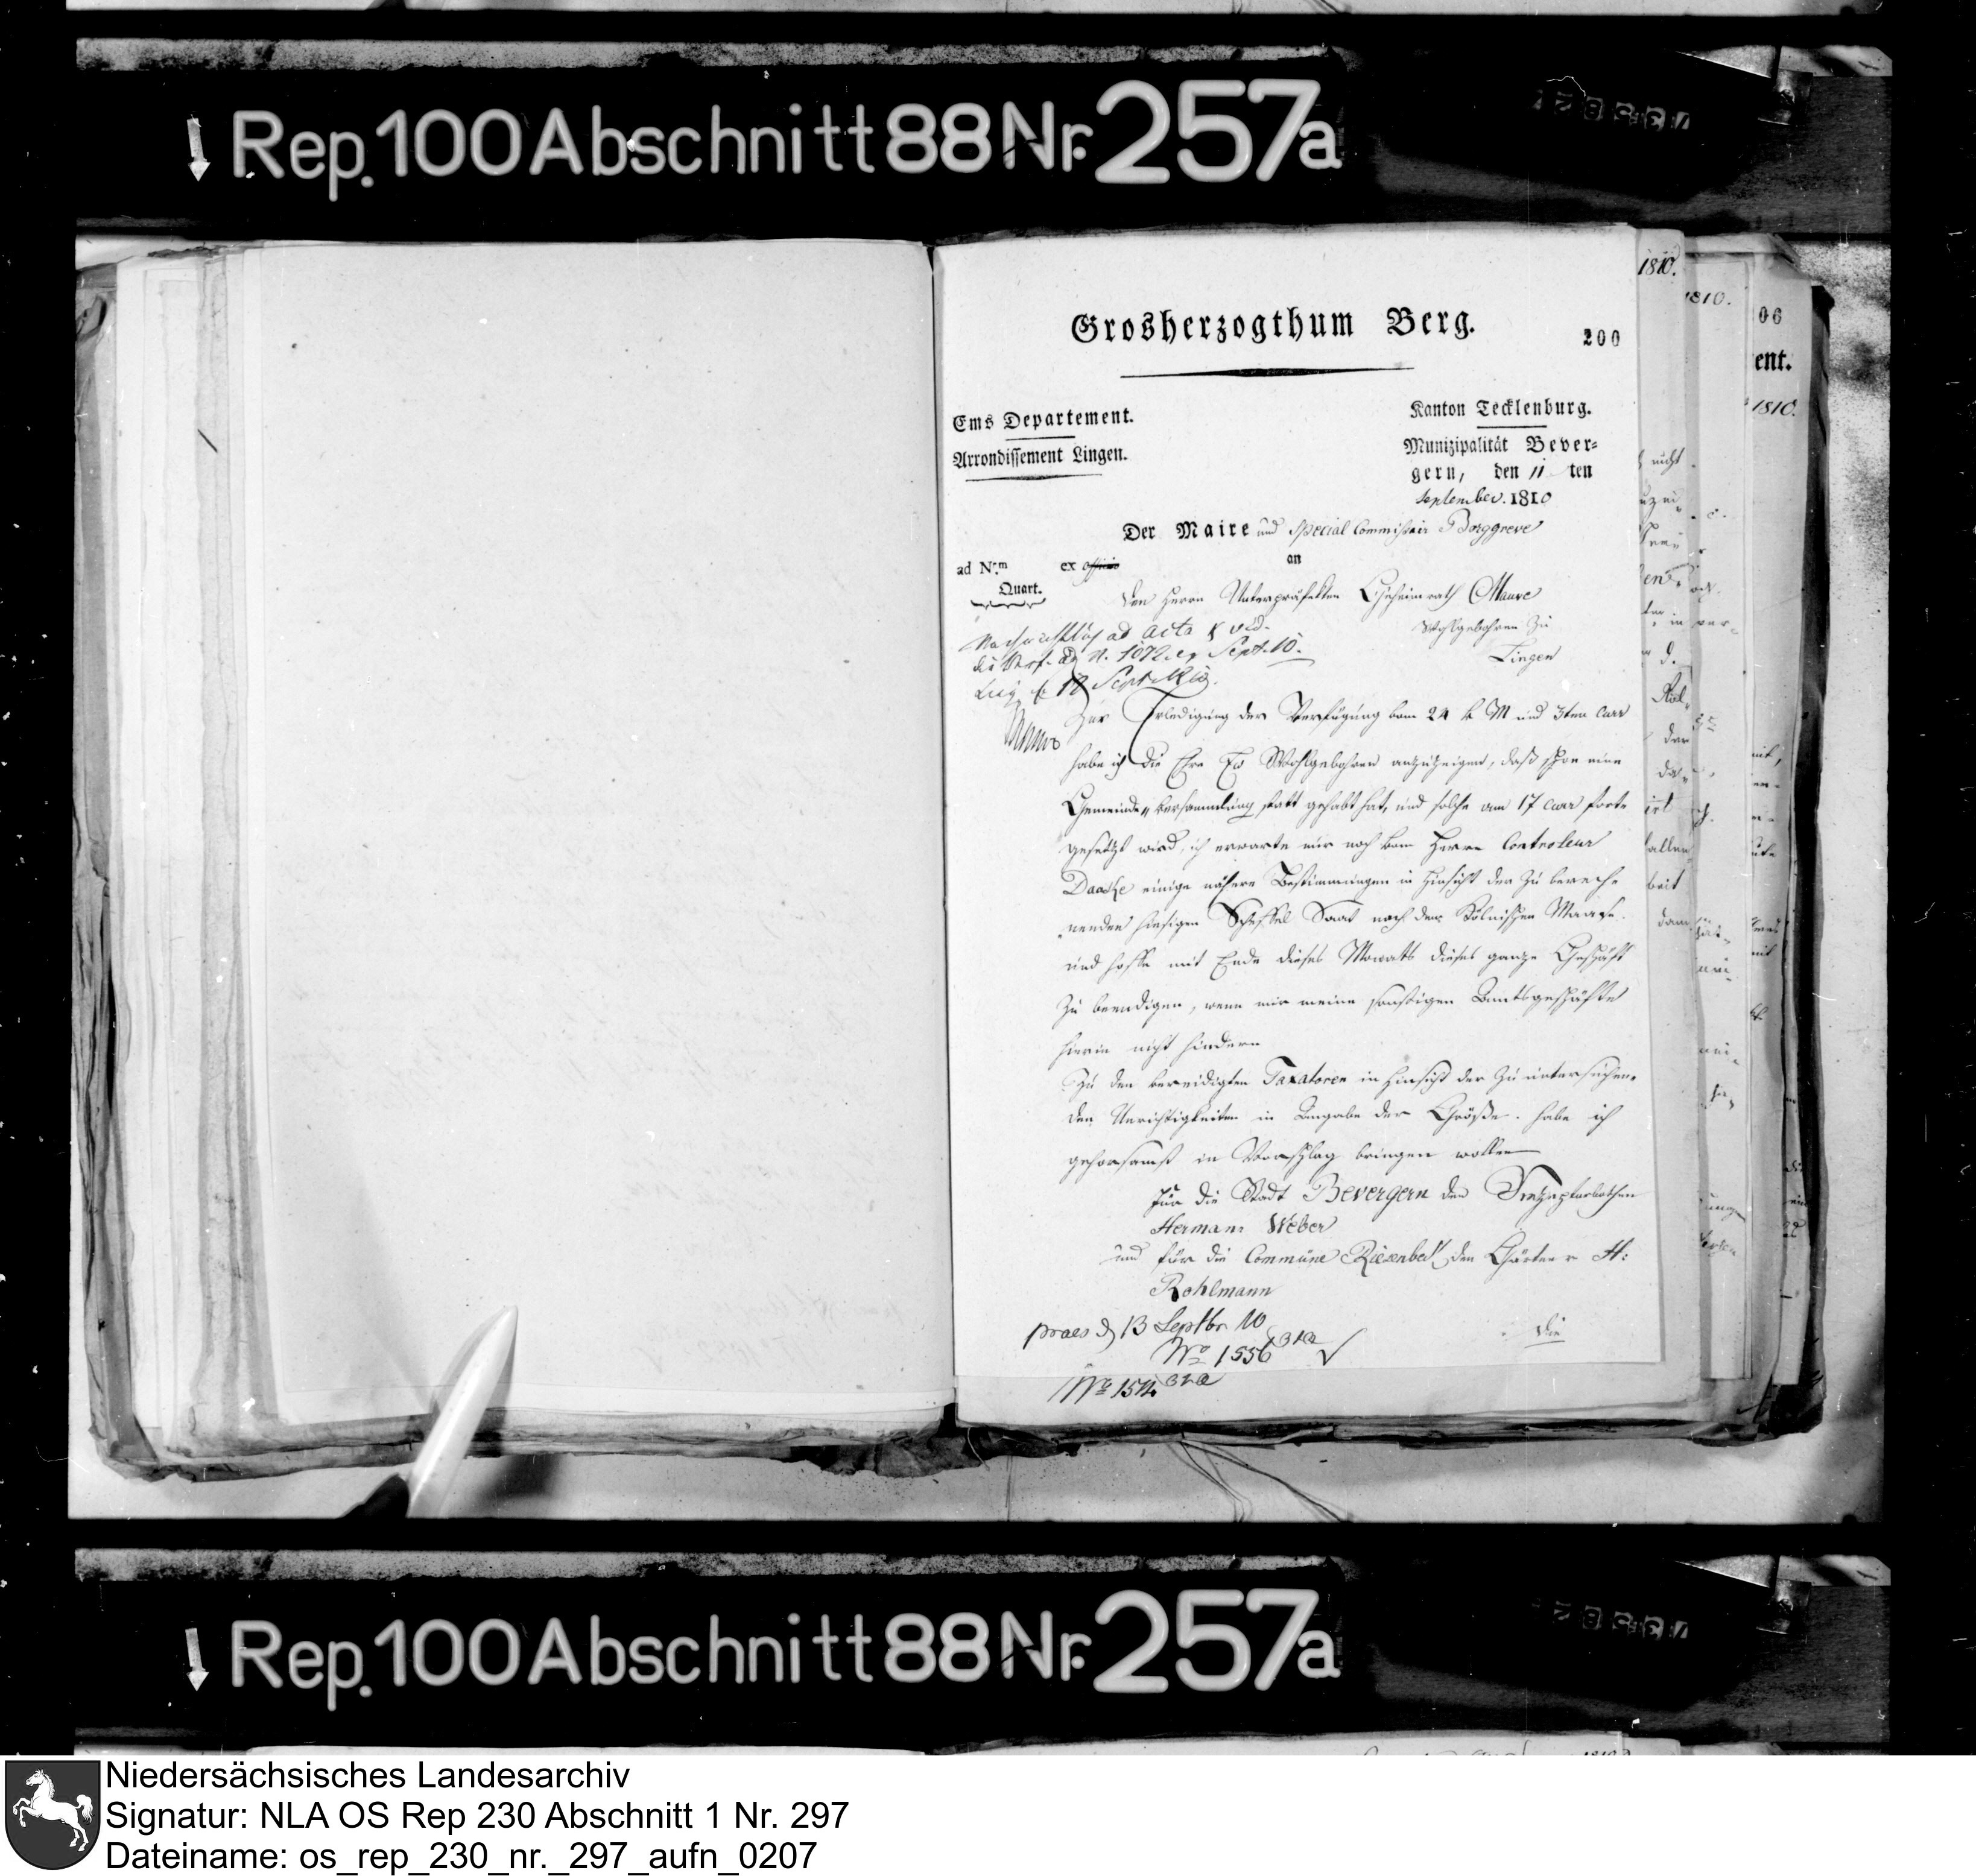 Rep. 100 Abschnitt 88 Nr. 257a
1810.
1810.
06
ent.
1810.
Grosherzogthum Berg.
200
Ems Departement.
Arrondissement Lingen.
Kanton Tecklenburg.
Munizipalität Bever-
gern, den 11 ten
September. 1810
Der Maire und Special Commissair Borggreve
an
ad N.m ex officio
Quart.
den Herrn Unterpräfekten Geheimrath Mauve
Wohlgebohren zu
Lingen
ad acta
N. 1072 Sept. 10.
Sept.
Mauve
Zur Erledigung der Verfügung vom 24 v. M und 3ten curr
habe ich die Ehre Ew Wohlgebohren anzuzeigen, daß schon eine
Gemeinde Versammlung statt gehabt hat, und solche am 17 curr forte
gesetzt wird, ich erwarte nur noch vom Herrn Controleur
Daacke einige nähere Bestimmungen in Hinsicht der zu berech
nenden hiesigen Scheffel Saat nach dem Kölnischen Maaße.
und hoffe mit Ende dieses Monats dieses ganze Geschäft
zu beendigen, wenn mir meine sonstigen Amtsgeschäfte
hierin nicht hindern
Zu den bereidigten Taxatoren in Hinsicht der zu untersuchen-
den Unrichtigkeiten in Angabe der Größe. habe ich
gehorsamst in Vorschlag bringen wollen
für die Stadt Bevergern den
Herman Weber
und für die Commüne Riesenbeck den Gärtner H:
Rohlmann
praes d 13 Septbr 10
No 1556
die
No 1514
Rep. 100 Abschnitt 88 Nr. 257a
Niedersächsisches Landesarchiv
Signatur: NLA OS Rep 230 Abschnitt 1 Nr. 297
Dateiname: os_rep_230_nr._297_aufn_0207